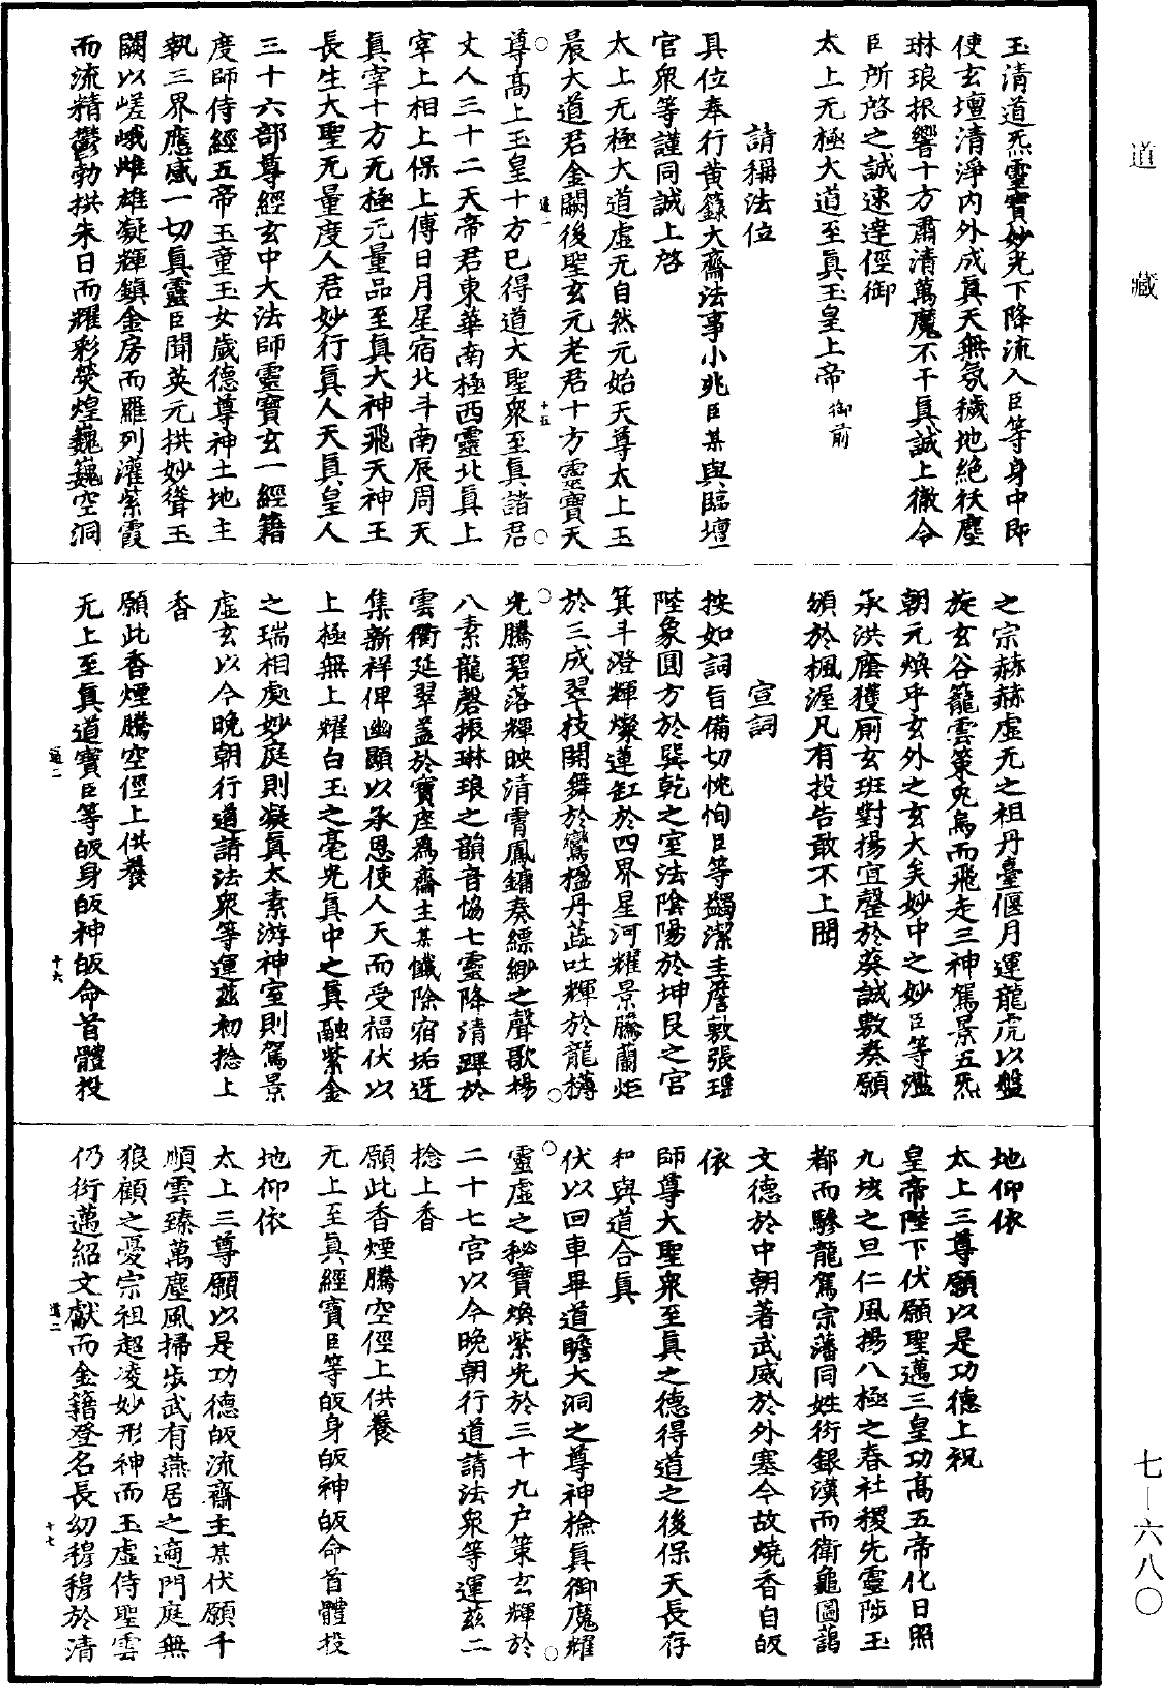 道藏
七—六八〇
玉清道炁靈寶妙光下降流入臣等身中即
使玄壇清淨內外成真天無氛穢地絕袄塵
琳琅振響十方肅清萬魔不干真誠上徹令
臣所啓之誠速達徑御
太上无極大道至真玉皇上帝御前
請稱法位
具位奉行黃籙大齋法事小兆臣某與臨壇
官衆等謹同誠上啓
太上无極大道虛无自然元始天尊太上玉
晨大道君金闕後聖玄元老君十方靈寶天
尊高上玉皇十方已得道大聖衆至真諸君
丈人三十二天帝君東華南極西靈北真上
宰上相上保上傅日月星宿北斗南辰周天
真宰十方无極元量品至真大神飛天神王
長生大聖无量度人君妙行真人天真皇人
三十六部尊經玄中大法師靈寶玄一經籍
度師侍經五帝玉童玉女歲德尊神土地主
執三界應感一切真靈臣聞英元拱妙聳玉
闕以嵯峨雌雄凝輝鎮金房而羅列灌紫霞
而流精鬱勃拱朱日而耀彩熒煌巍巍空洞
之宗赫赫虛无之祖丹臺偃月運龍虎以盤
旋玄谷籠雲策兔烏而飛走三神駕景五炁
朝元煥乎玄外之玄大矣妙中之妙臣等濫
承洪廕獲廁玄班對揚宜罄於葵誠敷奏願
頒於楓渥凡有投告敢不上聞
宣詞
按如詞旨備切忱恂臣等蠲潔圭詹敦張瑤
陛象圓方於巽乾之室法陰陽於坤艮之宮
箕斗澄輝燦蓮缸於四界星河耀景騰蘭炬
於三成翠技開舞於鸞楹丹蕋吐輝於龍櫸
光騰碧落輝映清霄鳳鏞奏縹緲之聲歌楊
八素龍磬振琳琅之韻音協七靈降清蹕於
雲衢延翠蓋於寶座爲齋主某懺除宿垢迓
集新祥俾幽顯以承恩使人天而受福伏以
上極無上耀白玉之毫光真中之真融紫金
之瑞相處妙庭則凝真太素游神室則駕景
虛玄以今晚朝行道請法衆等運茲初捻上
香
願此香煙騰空徑上供養
无上至真道寶臣等皈身皈神皈命首體投
地仰依
太上三尊願以是功德上祝
皇帝陛下伏願聖邁三皇功高五帝化日照
九垓之旦仁風揚八極之春社稷先靈陟玉
都而驂龍駕宗藩同姓衍銀漢而衛龜圖藹
文德於中朝著武威於外塞今故燒香自皈
依
師尊大聖衆至真之德得道之後保天長存
和與道合真
伏以回車畢道瞻大洞之尊神檢真御魔耀
靈虛之秘寶煥紫光於三十九戶策玄輝於
二十七宮以今晚朝行道請法衆等運茲二
捻上香
願此香煙騰空徑上供養
无上至真經寶臣等皈身皈神皈命首體投
地仰依
太上三尊願以是功德皈流齋主某伏願千
順雲臻萬塵風掃步武有燕居之適門庭無
狼顧之憂宗祖超凌妙形神而玉虛侍聖雲
仍衍邁紹文獻而金籍登名長幼穆穆於清